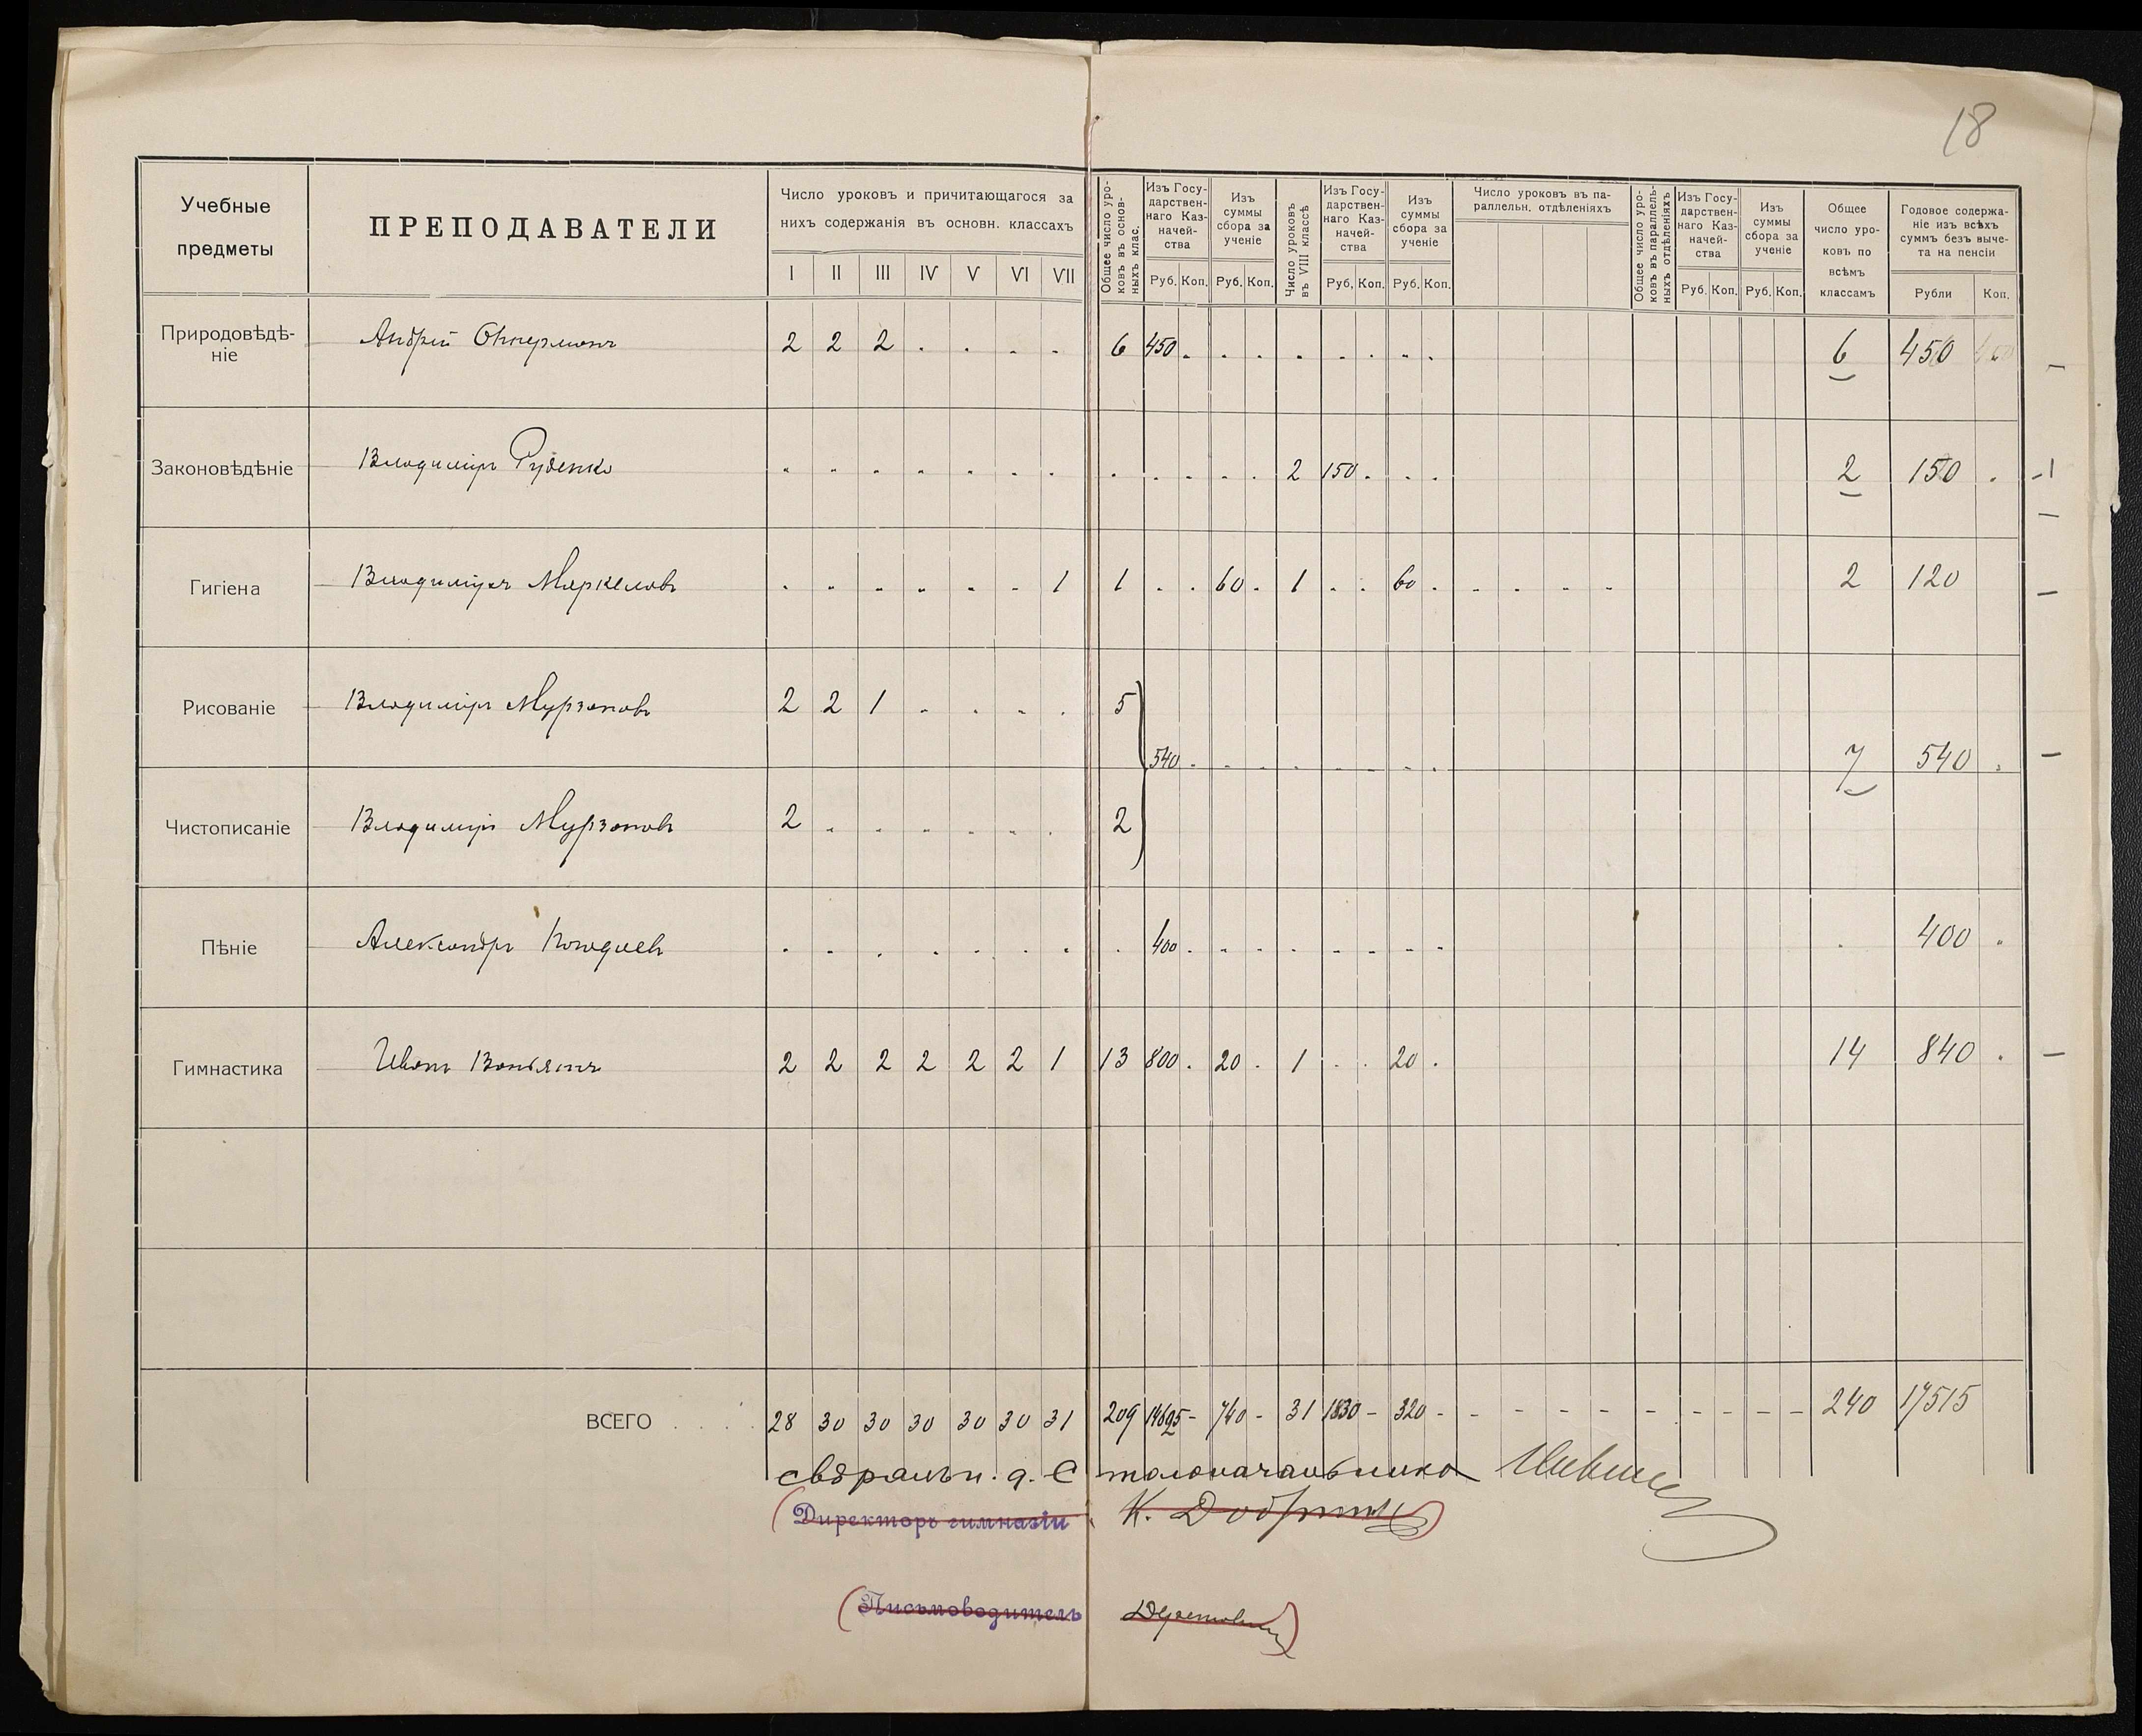 18
Учебные предметы
ПРЕПОДАВАТЕЛИ
Число уроковъ и причитающагося за нихъ содержанія въ основн. классахъ
I II III IV V VI VII
Общее число уроковъ въ основныхъ клас.
Изъ Государственнаго Казначейства
Руб. Коп.
Изъ суммы сбора за ученіе
Руб. Коп.
Число уроковъ въ VIII классѣ
Изъ Государственнаго Казначейства
Руб. Коп.
Изъ суммы сбора за ученіе
Руб. Коп.
Число уроковъ въ параллельн. отдѣленіяхъ
Общее число уроковъ въ параллельныхъ отдѣленіяхъ
Изъ Государственнаго Казначейства
Руб. Коп.
Изъ суммы сбора за ученіе
Руб. Коп.
Общее число уроковъ по всѣмъ классамъ
Годовое содержаніе изъ всѣхъ суммъ безъ вычета на пенсіи
Рубли Коп.
Природовѣдѣніе Андрей 2 2 2 . . . . 6 450 . . . . . . . . . 6 450
Законовѣдѣніе Владиміръ Руденко . . . . . . . . . . . . 2 150 . . . 2 150 .
Гигіена Владиміръ Маркеловъ . . . . . . 1 1 . . 60 . 1 . . 60 . . . . . 2 120
Рисованіе Владиміръ Мурзановъ 2 2 1 . . . . 5
540 . . . . . . . . . 7 540 .
Чистописаніе Владиміръ Мурзановъ 2 . . . . . . 2
Пѣніе Александръ . . . . . . . . 400 . . . . . . . . . . 400 .
Гимнастика Иванъ 2 2 2 2 2 2 1 13 800 . 20 . 1 . . 20 . 14 840 .
ВСЕГО . . . . 28 30 30 30 30 30 31 209 14625 - 740 - 31 1830 - 320 - - - - - - - - - - - 240 17515
свѣрялъ и. д. Столоначальника
Директоръ гимназіи К.
Письмоводитель